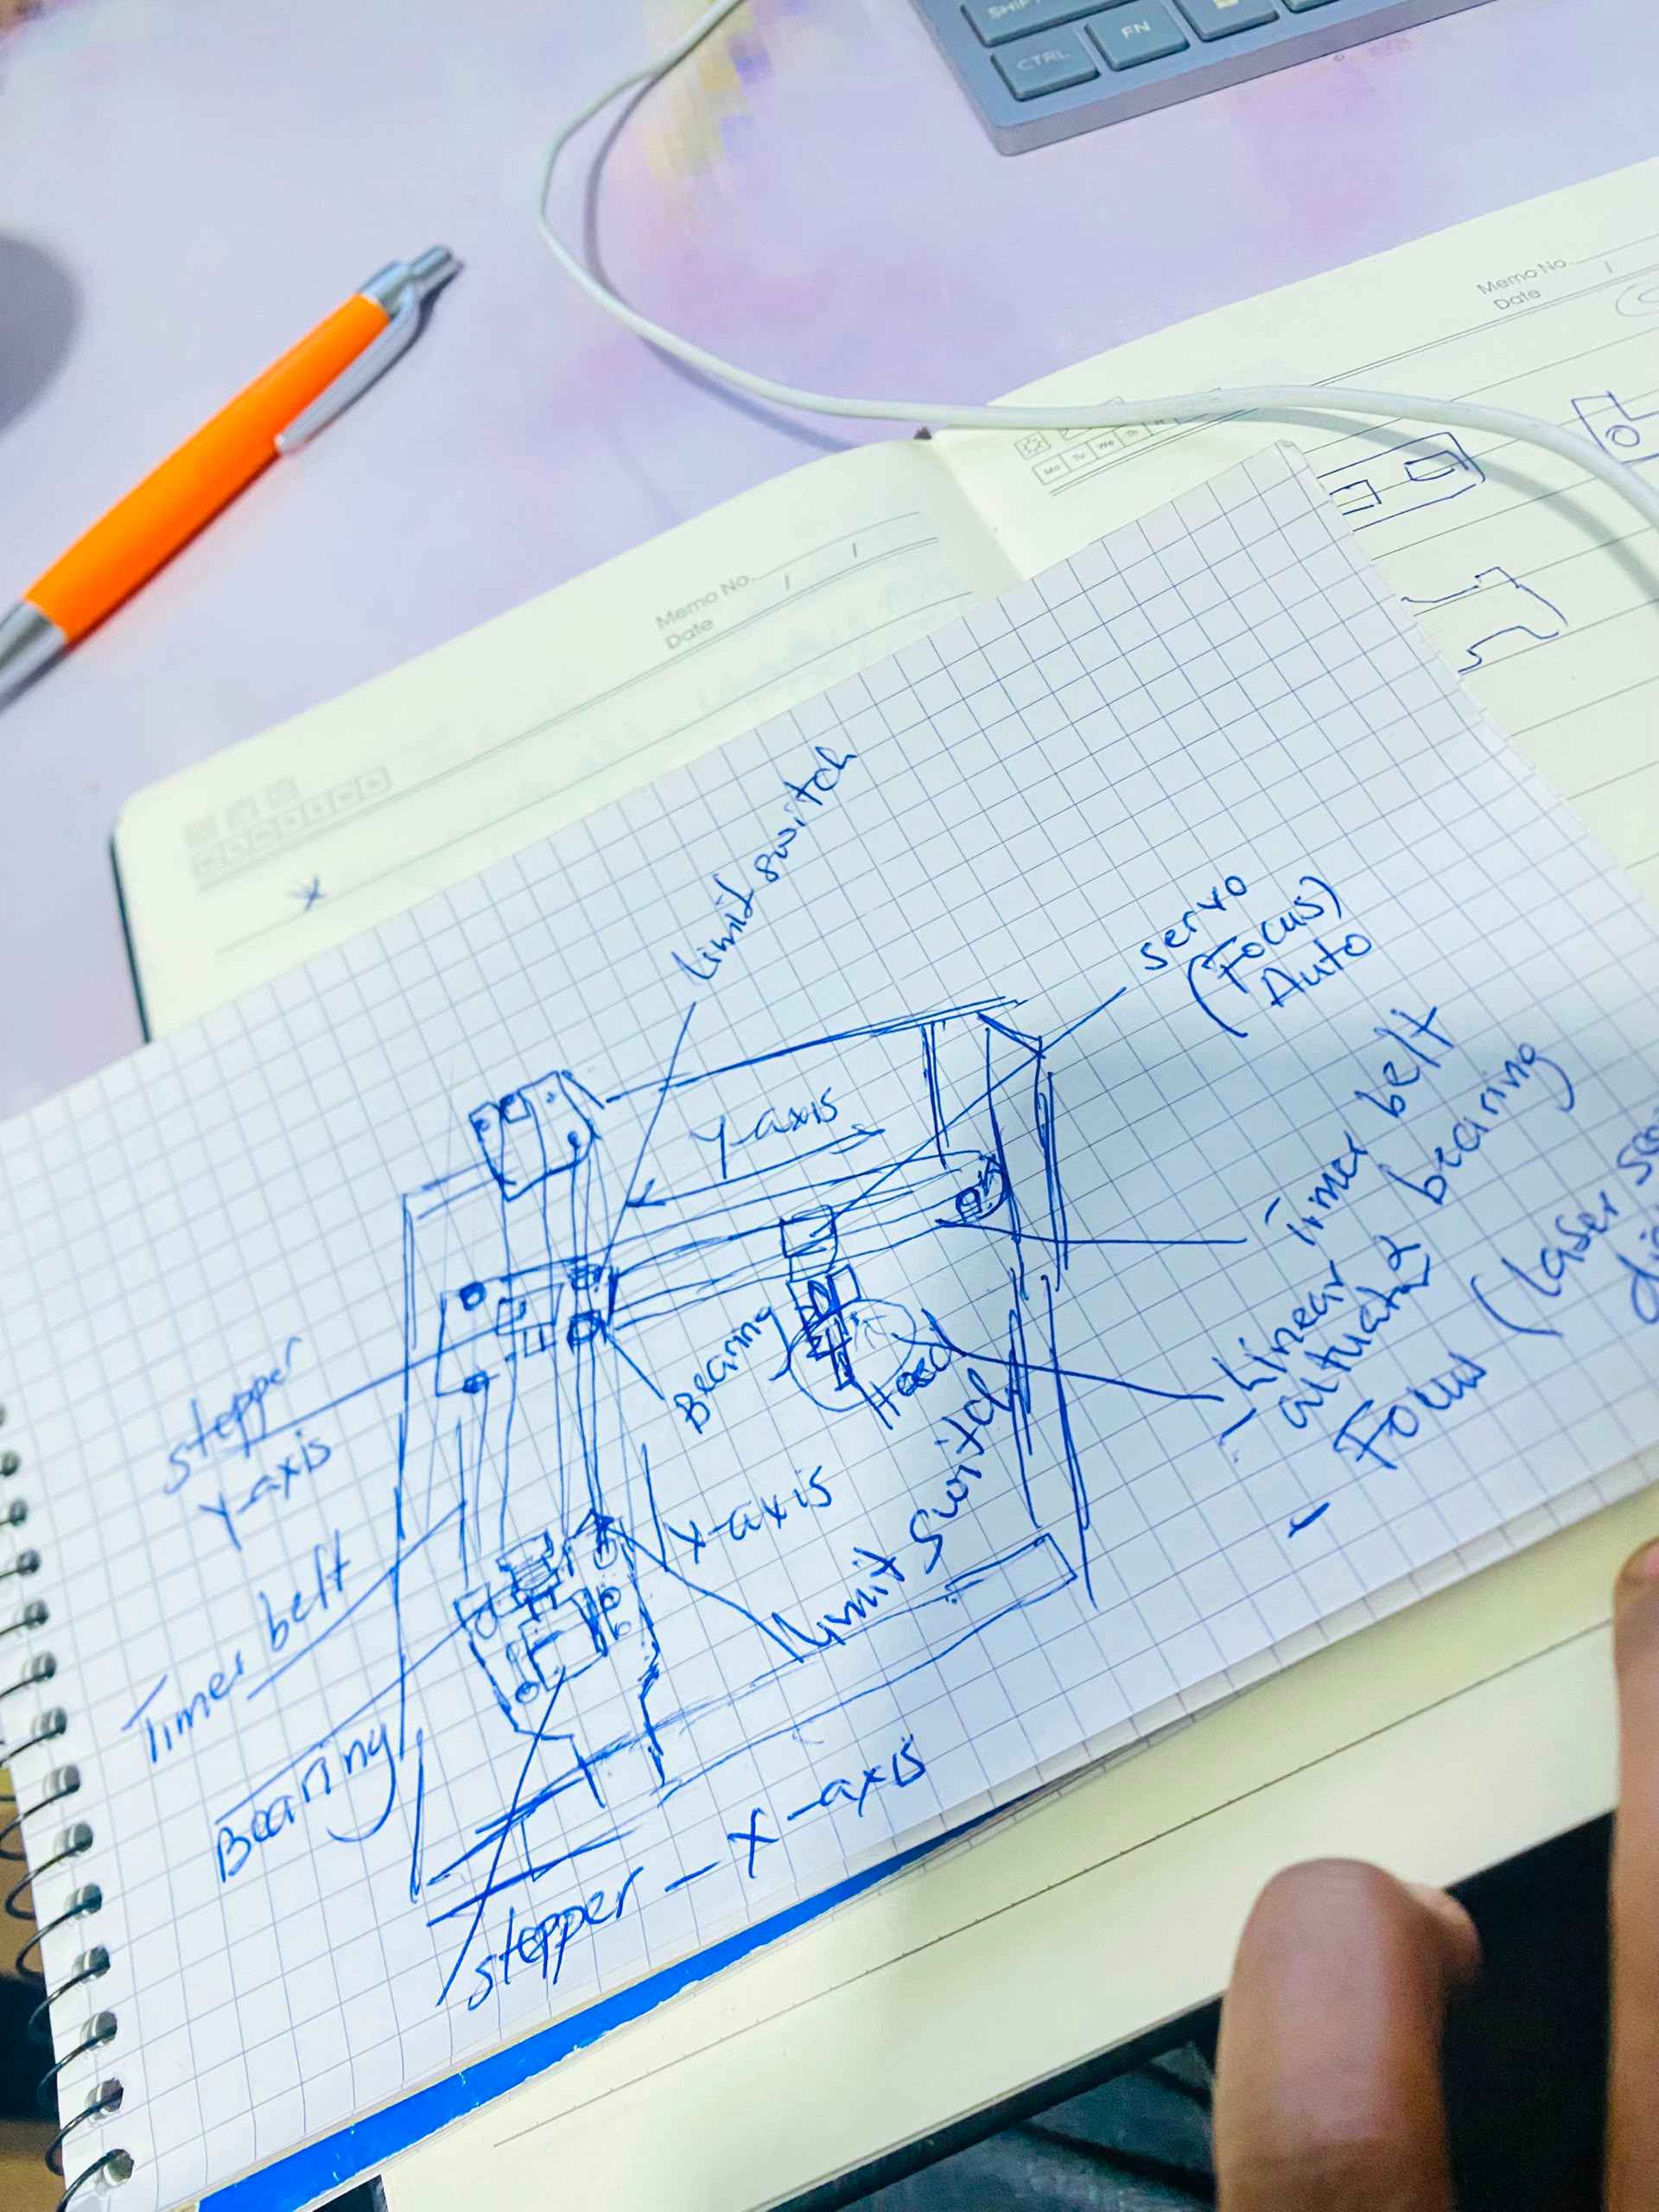 SHIFT
CTRL
FN
Memo No.
Date
Mo Tu We Th
Memo No.
Date
x
Limit switch
servo
(Focus)
Auto
Y-axis
Timer belt
Linear
bearing
Focus (laser
Bearing
Head
stepper
Y-axis
X-axis
Limit Switch
Timer belt
Bearing
stepper - X-axis